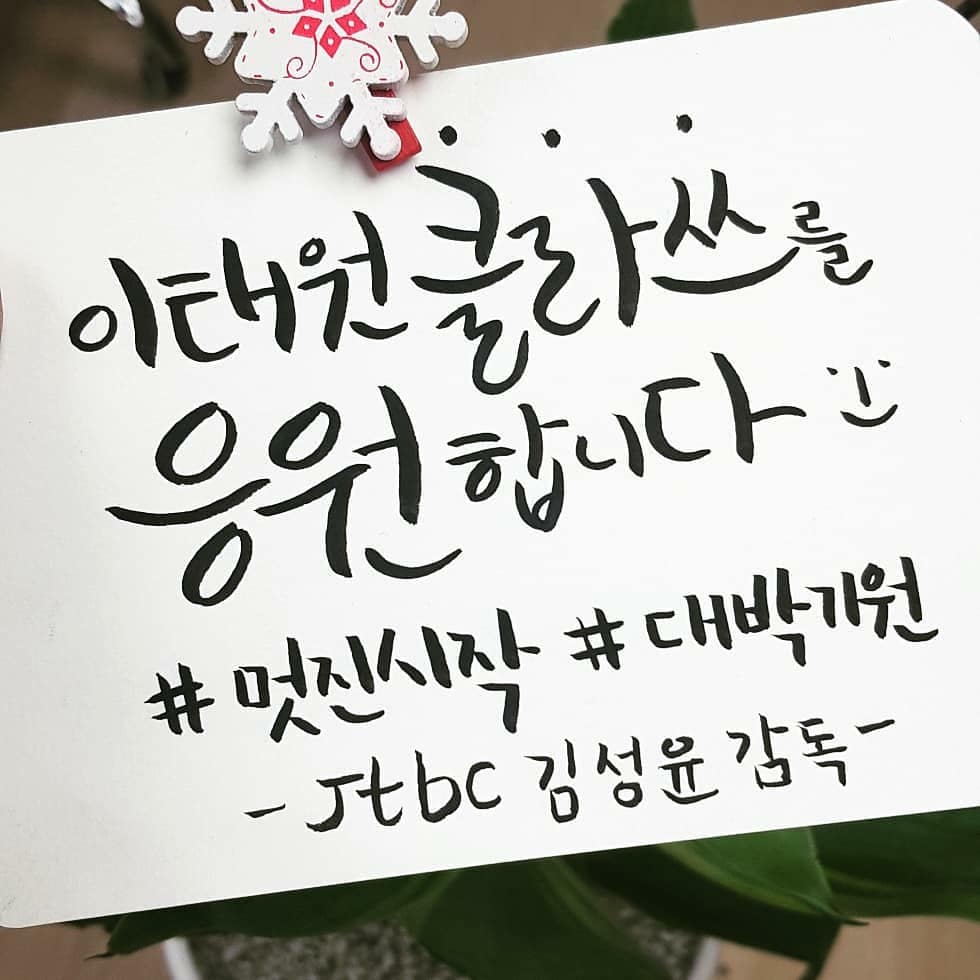 이태원클라쓰를
응원합니다 :)
#멋진시작 #대박기원
- Jtbc 김성윤 감독 -